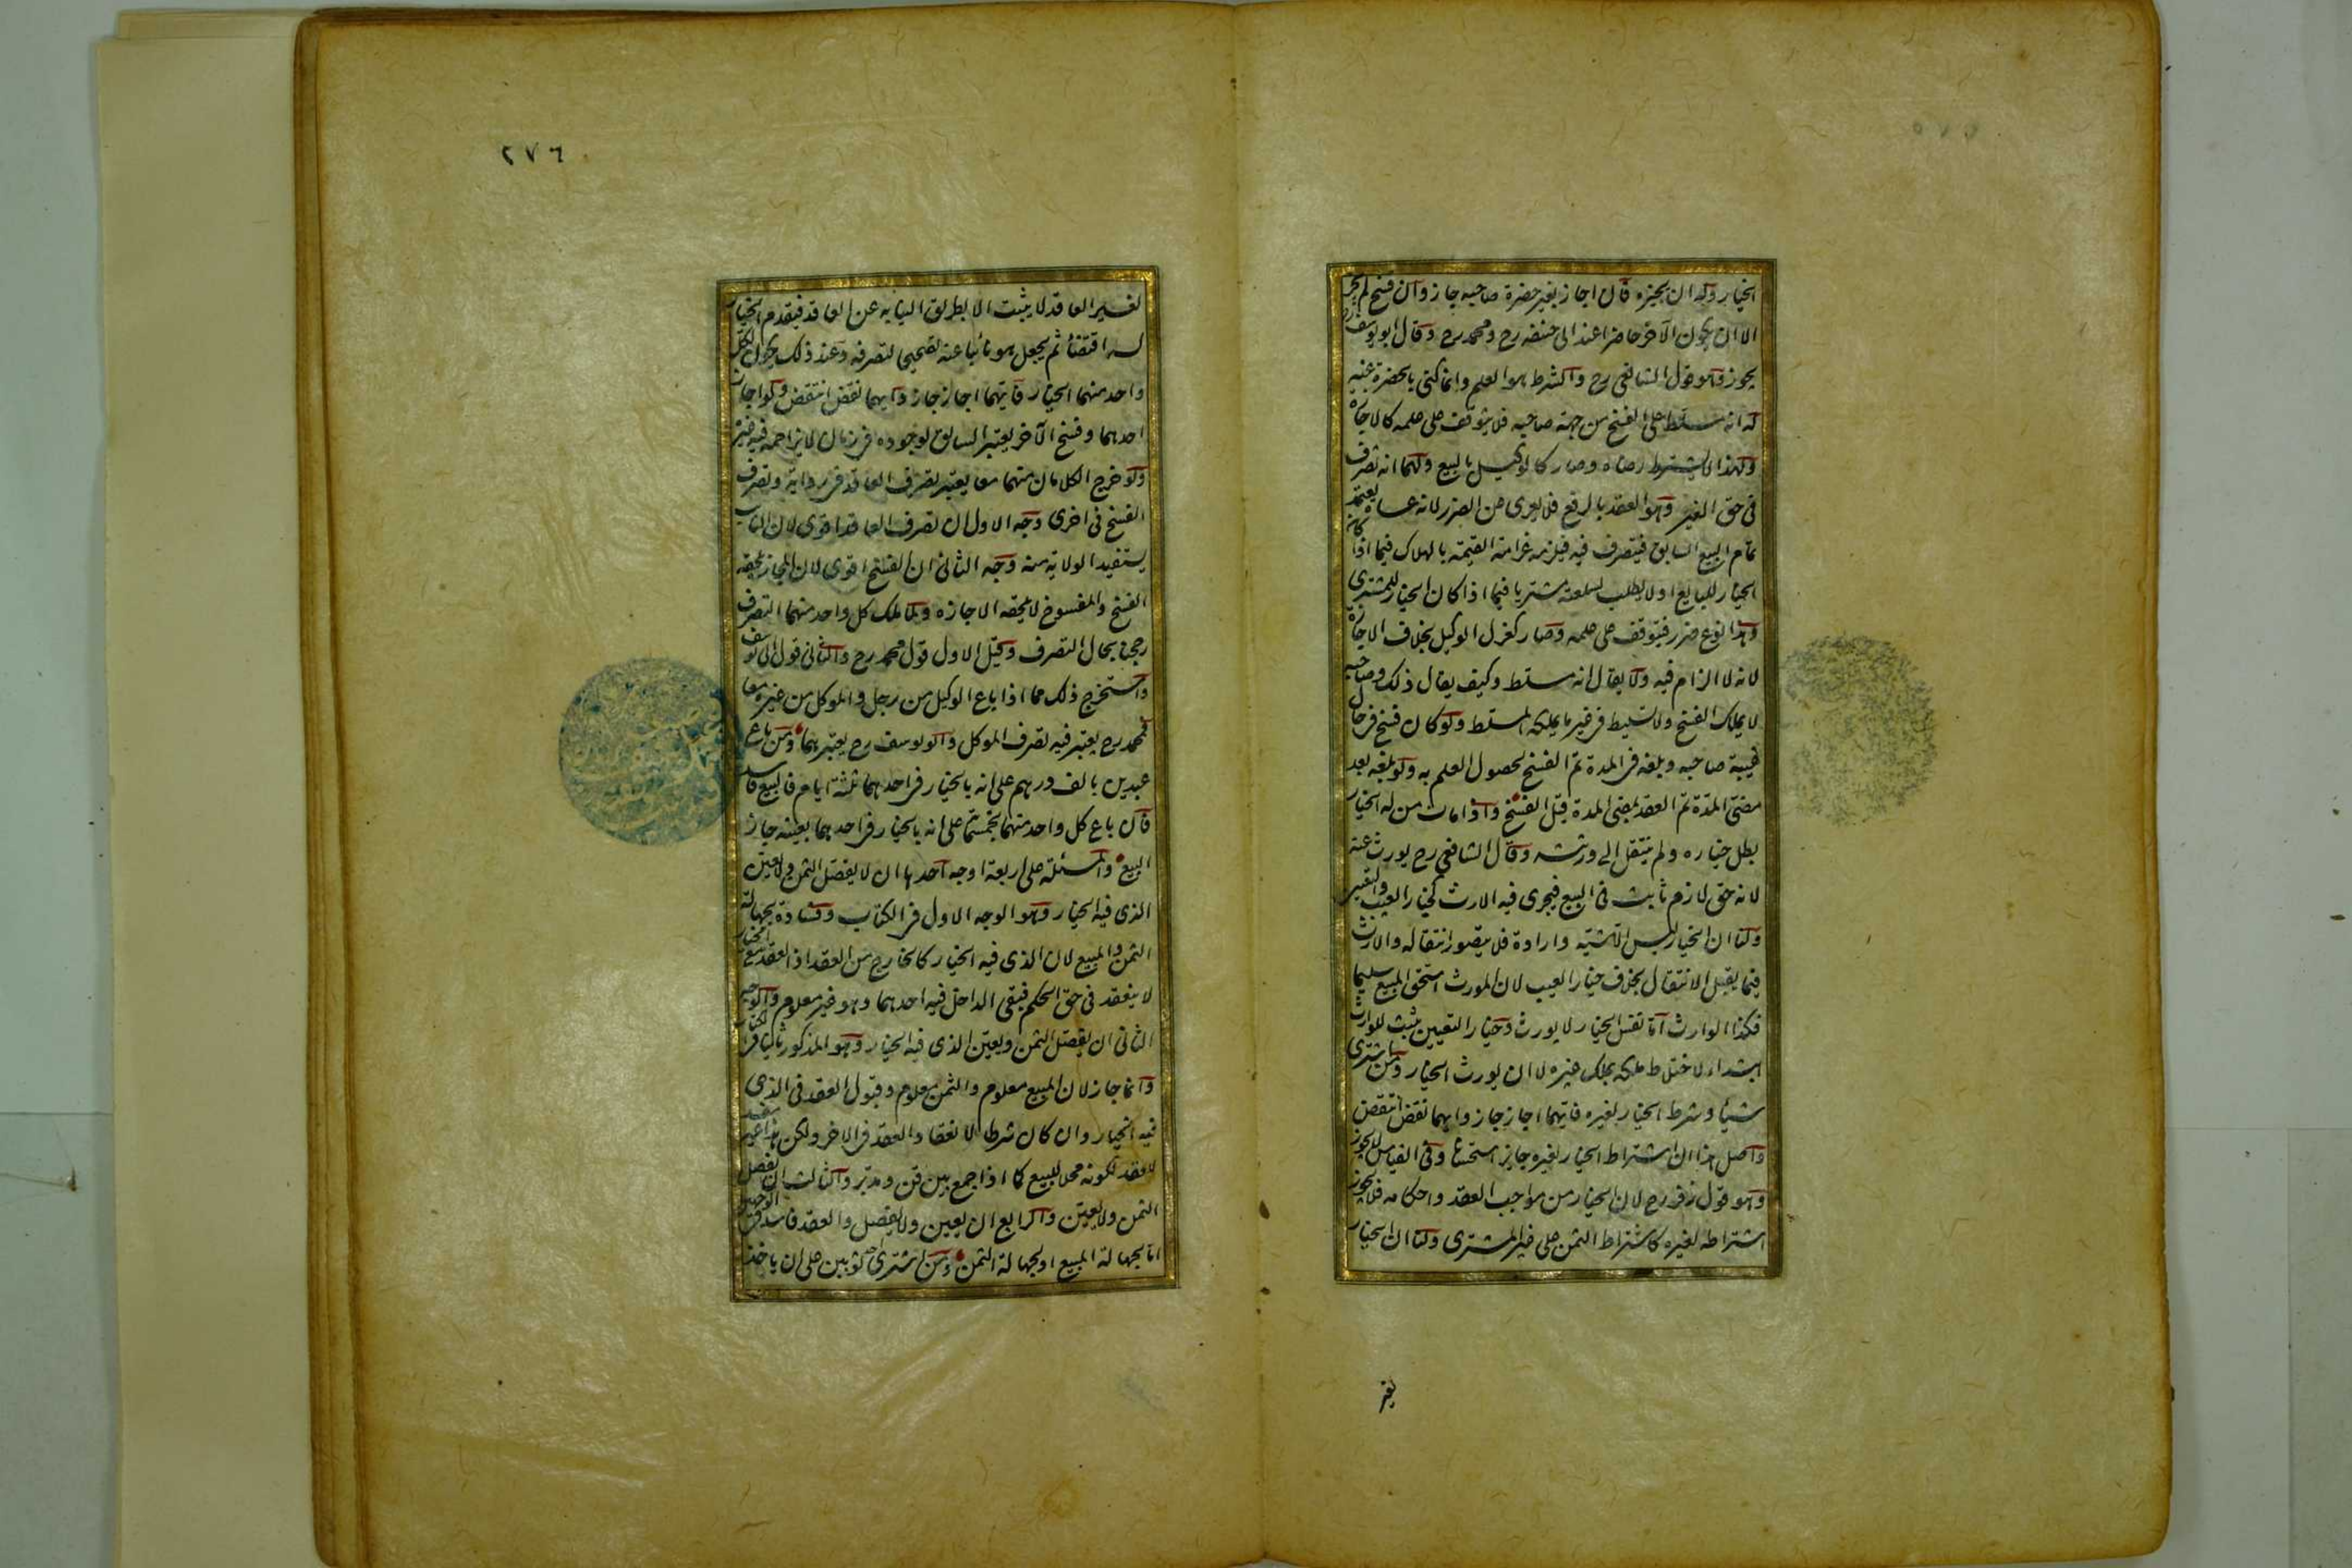 الخيار وله ان يجيزه فان اجاز بغير حضرة صاحبه جاز وان فسخ لم يجز
الا ان يكون الآخر حاضرا عند ابى حنيفه رح ومحمد رح وقال ابو يوسف رح
يجوز وهو قول الشافعى رح والشرط هو العلم وانما كنى بالحضرة عنه
له انه مسلط على الفسخ من جهة صاحبه فلا يتوقف على علمه كالاجازة
ولهذا لا يشترط رضاه وصار كالوكيل بالبيع ولهما انه تصرف
فى حق الغير وهو العقد بالرفع فلا يعرى عن الضرر لانه عساه يعتمد
تمام البيع السابق فيتصرف فيه فيلزمه غرامة القيمة بالهلاك فيما اذا كان
الخيار للبايع او لا يطلب لسلعته مشتريا فيما اذا كان الخيار للمشترى
وهذا نوع ضرر فيتوقف على علمه وصار كعزل الوكيل بخلاف الاجازة
لانه لا الزام فيه ولا يقال انه مسلط وكيف يقال ذلك وصاحبه
لا يملك الفسخ ولا تسليط فى غير ما يملكه المسلط ولو كان فسخ فى حال
غيبة صاحبه وبلغه فى المدة تم الفسخ لحصول العلم به ولو بلغه بعد
مضى المدة تم العقد بمضى المدة قبل الفسخ واذا مات من له الخيار
بطل خياره ولم ينتقل الى ورثته وقال الشافعى رح يورث عنه
لانه حق لازم ثابت فى البيع فيجرى فيه الارث كخيار العيب والتعيين
ولنا ان الخيار ليس الا مشية وارادة فلا يتصور انتقاله والارث
فيما يقبل الانتقال بخلاف خيار العيب لان المورث استحق المبيع سليما
فكذا الوارث اما نفس الخيار لا يورث وخيار التعيين يثبت للوارث
ابتداء لاختلاط ملكه بملك غيره لا ان يورث الخيار ومن اشترى
شيئا وشرط الخيار لغيره فايهما اجاز جاز وايهما نقض انتقض
واصل هذا ان اشتراط الخيار لغيره جايز استحسانا وفى القياس لا يجوز
وهو قول زفر رح لان الخيار من مواجب العقد واحكامه فلا يجوز
اشتراطه لغيره كاشتراط الثمن على غير المشترى ولنا ان الخيار
لغير
٢٧٦
لغير العاقد لا يثبت الا بطريق النيابه عن العاقد فيقدم الخيار
له اقتضاء ثم يجعل هو نائبا عنه تصحيحا لتصرفه وعند ذلك يكون لكل
واحد منهما الخيار فايهما اجاز جاز وايهما نقض انتقض ولو اجاز
احدهما وفسخ الآخر يعتبر السابق لوجوده فى زمان لا يزاحمه فيه غيره
ولو خرج الكلامان منهما معا يعتبر تصرف العاقد فى رواية وتصرف
الفسخ فى اخرى وجه الاول ان تصرف العاقد اقوى لان النايب
يستفيد الولاية منه وجه الثانى ان الفسخ اقوى لان المجاز يلحقه
الفسخ والمفسوخ لا يلحقه الاجازه ولما ملك كل واحد منهما التصرف
رجحنا بحال التصرف وقيل الاول قول محمد رح والثانى قول ابى يوسف
واستخرج ذلك مما اذا باع الوكيل من رجل والموكل من غيره معا
فمحمد رح يعتبر فيه تصرف الموكل وابو يوسف رح يعتبرهما ومن باع
عبدين بالف درهم على انه بالخيار فى احدهما ثلثة ايام فالبيع فاسد
فان باع كل واحد منهما بخمسمائة على انه بالخيار فى احدهما بعينه جاز
البيع والمسئلة على اربعة اوجه احدها ان لا يفصل الثمن ولا يعين
الذى فيه الخيار وهو الوجه الاول فى الكتاب وفساده لجهالة
الثمن والمبيع لان الذى فيه الخيار كالخارج من العقد اذ العقد مع الخيار
لا ينعقد فى حق الحكم فبقى الداخل فيه احدهما وهو غير معلوم والوجه
الثانى ان يفصل الثمن ويعين الذى فيه الخيار وهو المذكور ثانيا فى الكتاب
وانما جاز لان المبيع معلوم والثمن معلوم وقبول العقد فى الذى
فيه الخيار وان كان شرطا لانعقاد العقد فى الاخر ولكن هذا غير مفسد
للعقد لكونه محلا للبيع كما اذا جمع بين قن ومدبر والثالث ان يفصل
الثمن ولا يعين والرابع ان يعين ولا يفصل والعقد فاسد فى الوجهين
اما لجهالة المبيع او لجهالة الثمن ومن اشترى ثوبين على ان ياخذ